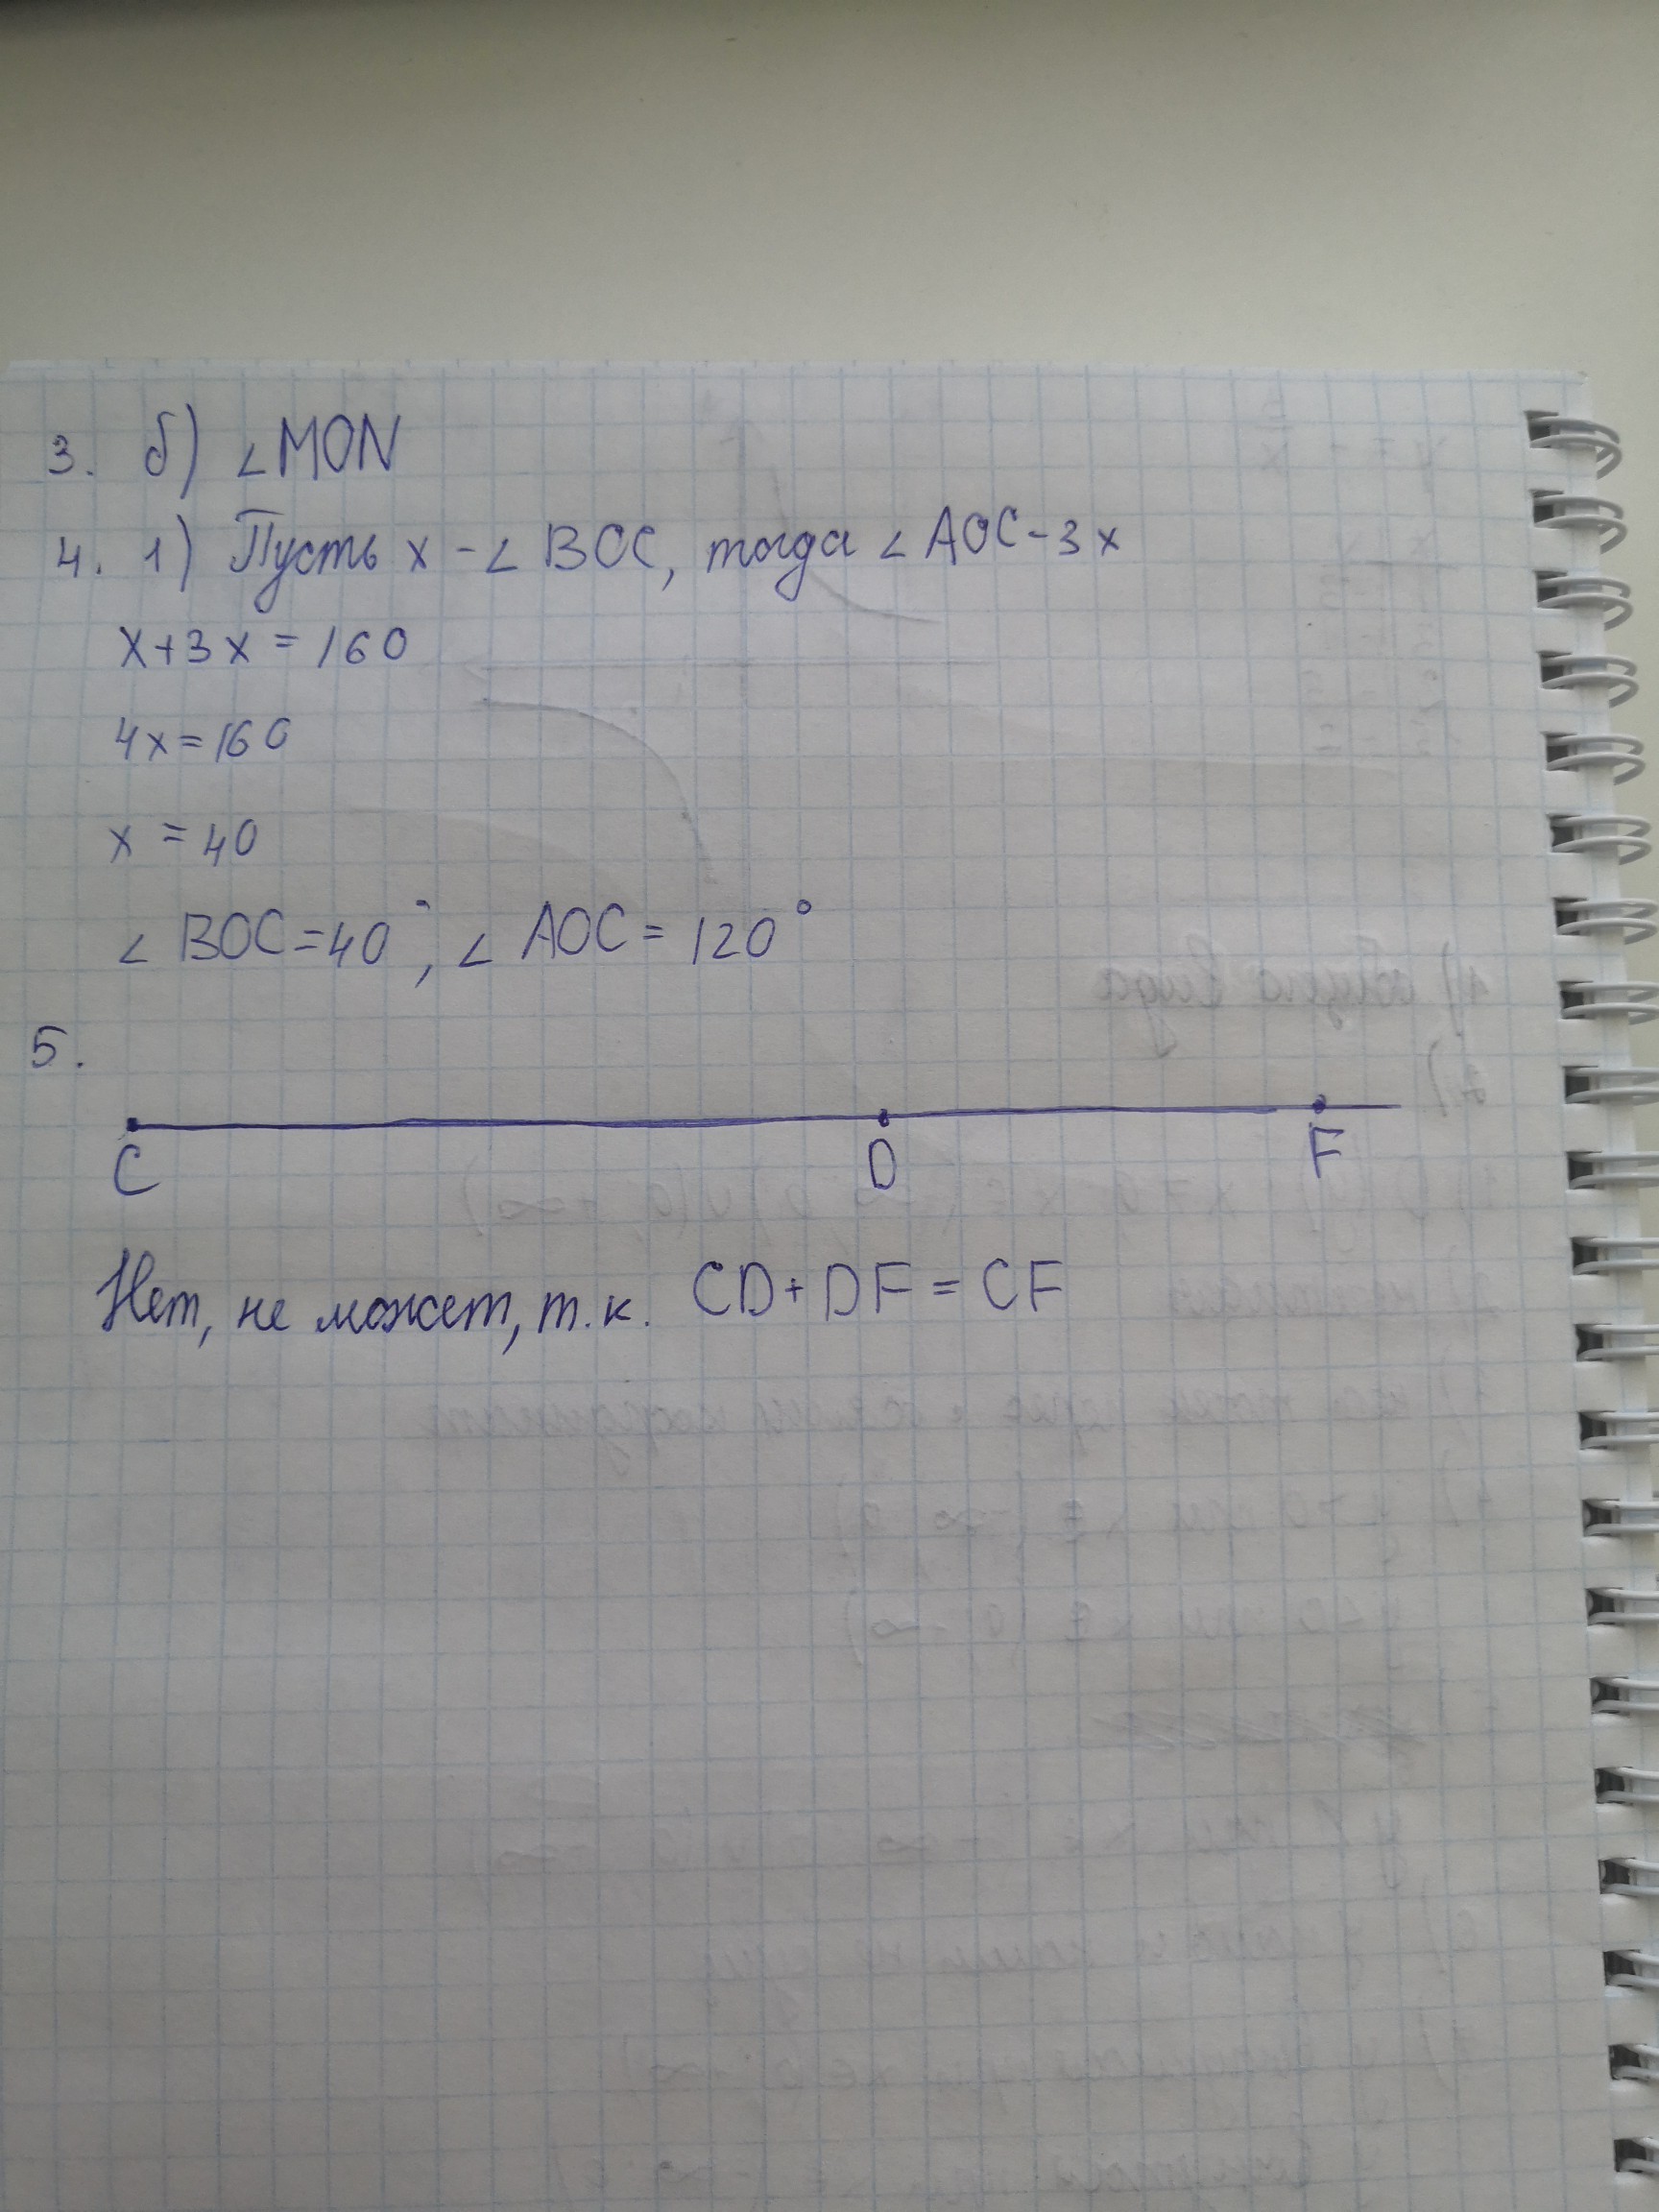 3. б) ∠MON
4. 1) Пусть x - ∠BOC, тогда ∠AOC - 3x
x+3x = 160
4x = 160
x = 40
∠BOC = 40°, ∠AOC = 120°
5.
C D F
Нет, не может, т.к. CD + DF = CF